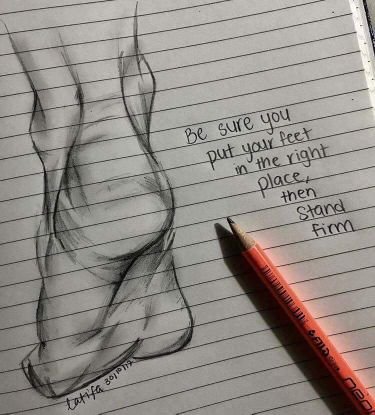 Be sure you
put your feet
in the right
place,
then
Stand
firm
Latifa 30/10/17